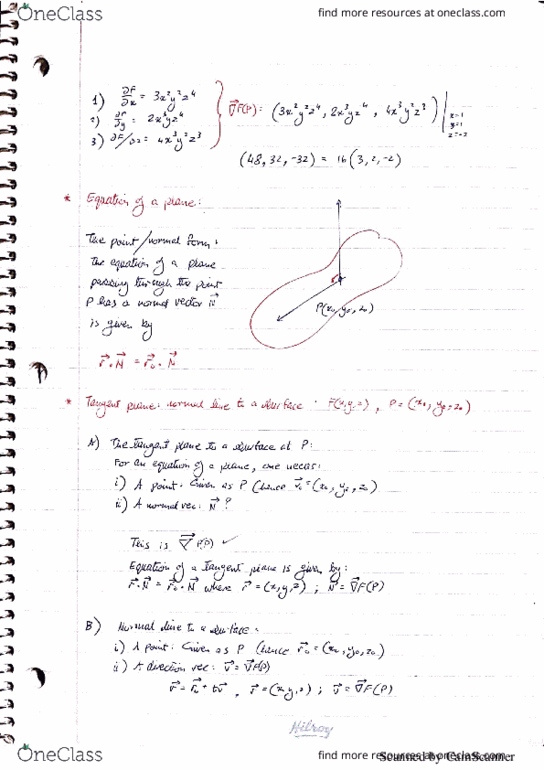 OneClass
find more resources at oneclass.com
1) ∂F/∂x = 3x²y²z⁴
2) ∂F/∂y = 2x³yz⁴
3) ∂F/∂z = 4x³y²z³
∇F(P): (3x²y²z⁴, 2x³yz⁴, 4x³y²z³) |
(48, 32, -32) = 16(3, 2, -2)
* Equation of a plane:
The point/normal form:
the equation of a plane
passing through the point
P has a normal vector N
is given by
r⃗ · N⃗ = r⃗₀ · N⃗
P(x₀, y₀, z₀)
* Tangent plane: normal line to a surface · F(x,y,z), P = (x₀, y₀, z₀)
A) The tangent plane to a surface at P:
For an equation of a plane, one needs:
i) A point: Given as P (hence r⃗₀ = (x₀, y₀, z₀)
ii) A normal vec: N⃗ ?
This is ∇F(P) ✓
Equation of a tangent plane is given by:
r⃗·N⃗ = r⃗₀·N⃗ where r⃗ = (x,y,z) ; N⃗ = ∇F(P)
B) Normal line to a surface:
i) A point: Given as P (hence r⃗₀ = (x₀, y₀, z₀)
ii) A direction vec: v⃗ = ∇F(P)
r⃗ = r⃗₀ + tv⃗ , r⃗ = (x,y,z) ; v⃗ = ∇F(P)
Hilroy
OneClass
find more resources at oneclass.com
Scanned by CamScanner